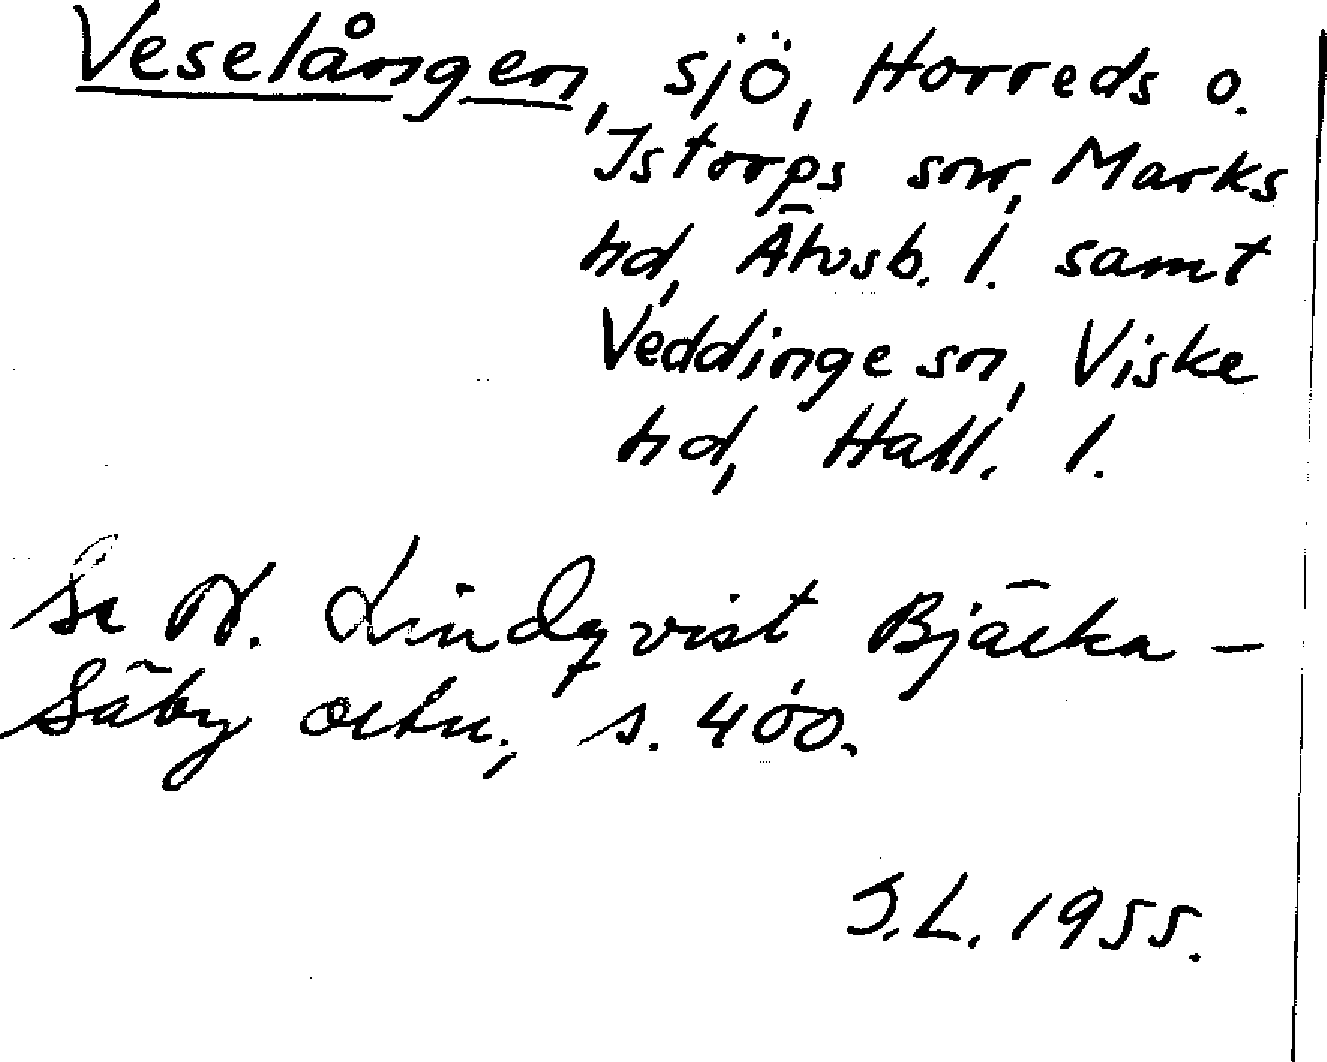 Veselången, sjö, Horreds o.
Istorps snr, Marks
hd, Älvsb. l. samt
Veddinge sn, Viske
hd, Hall. l.
Se N. Lindqvist Bjärka-
Säby ortn., s. 400.
J.L. 1955.